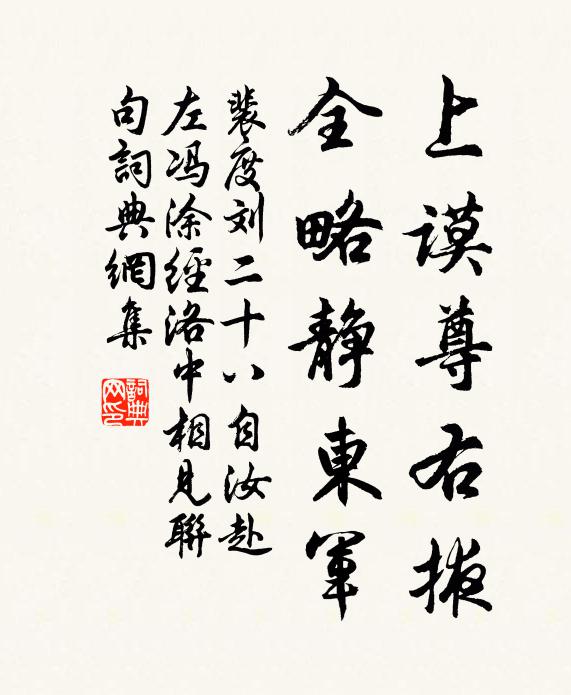 上谟尊右掖
全略静東軍
裴度刘二十八自汝赴
左冯涂經洛中相見聯
句詞典網集
詞典
网印